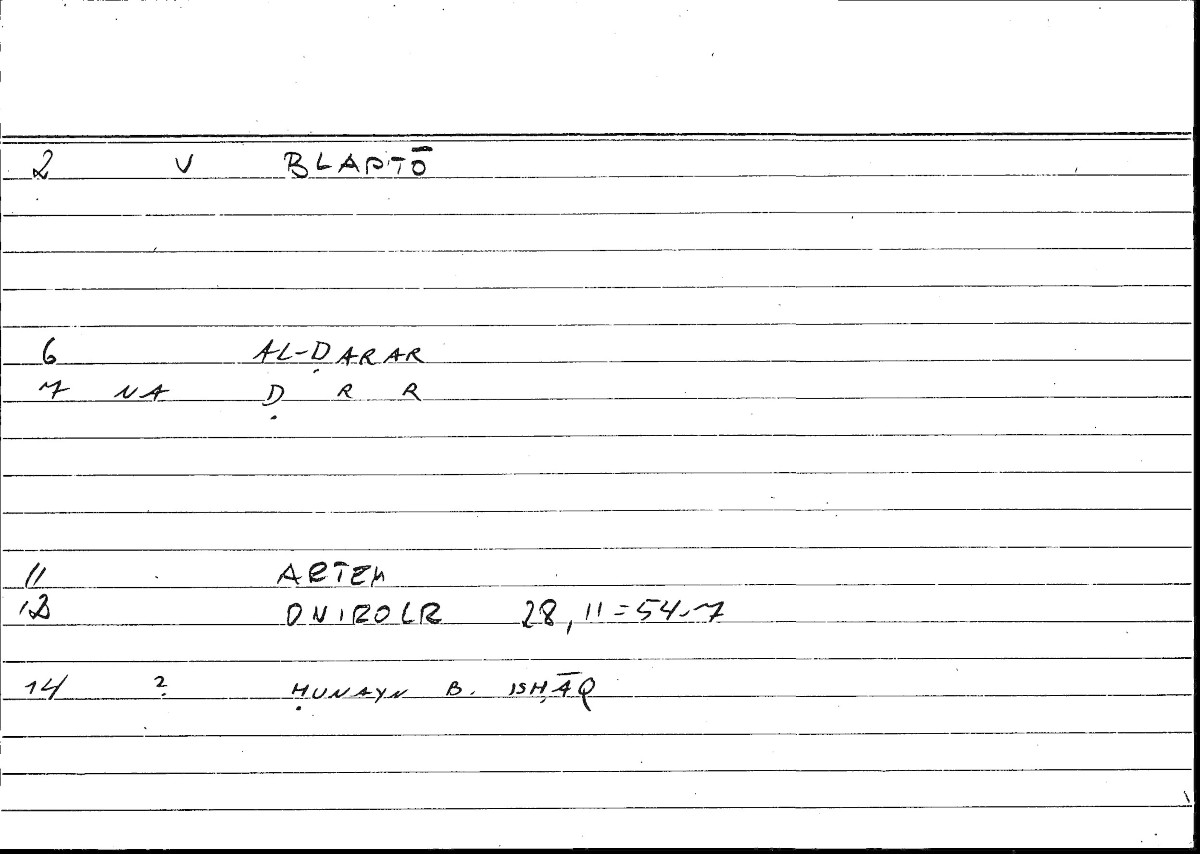 2 V BLAPTŌ
6 AL-ḌARAR
7 NA Ḍ R R
11 ARTEM
12 ONIROCR 28, 11 = 54.7
14 ? ḤUNAYN B. ISḤĀQ